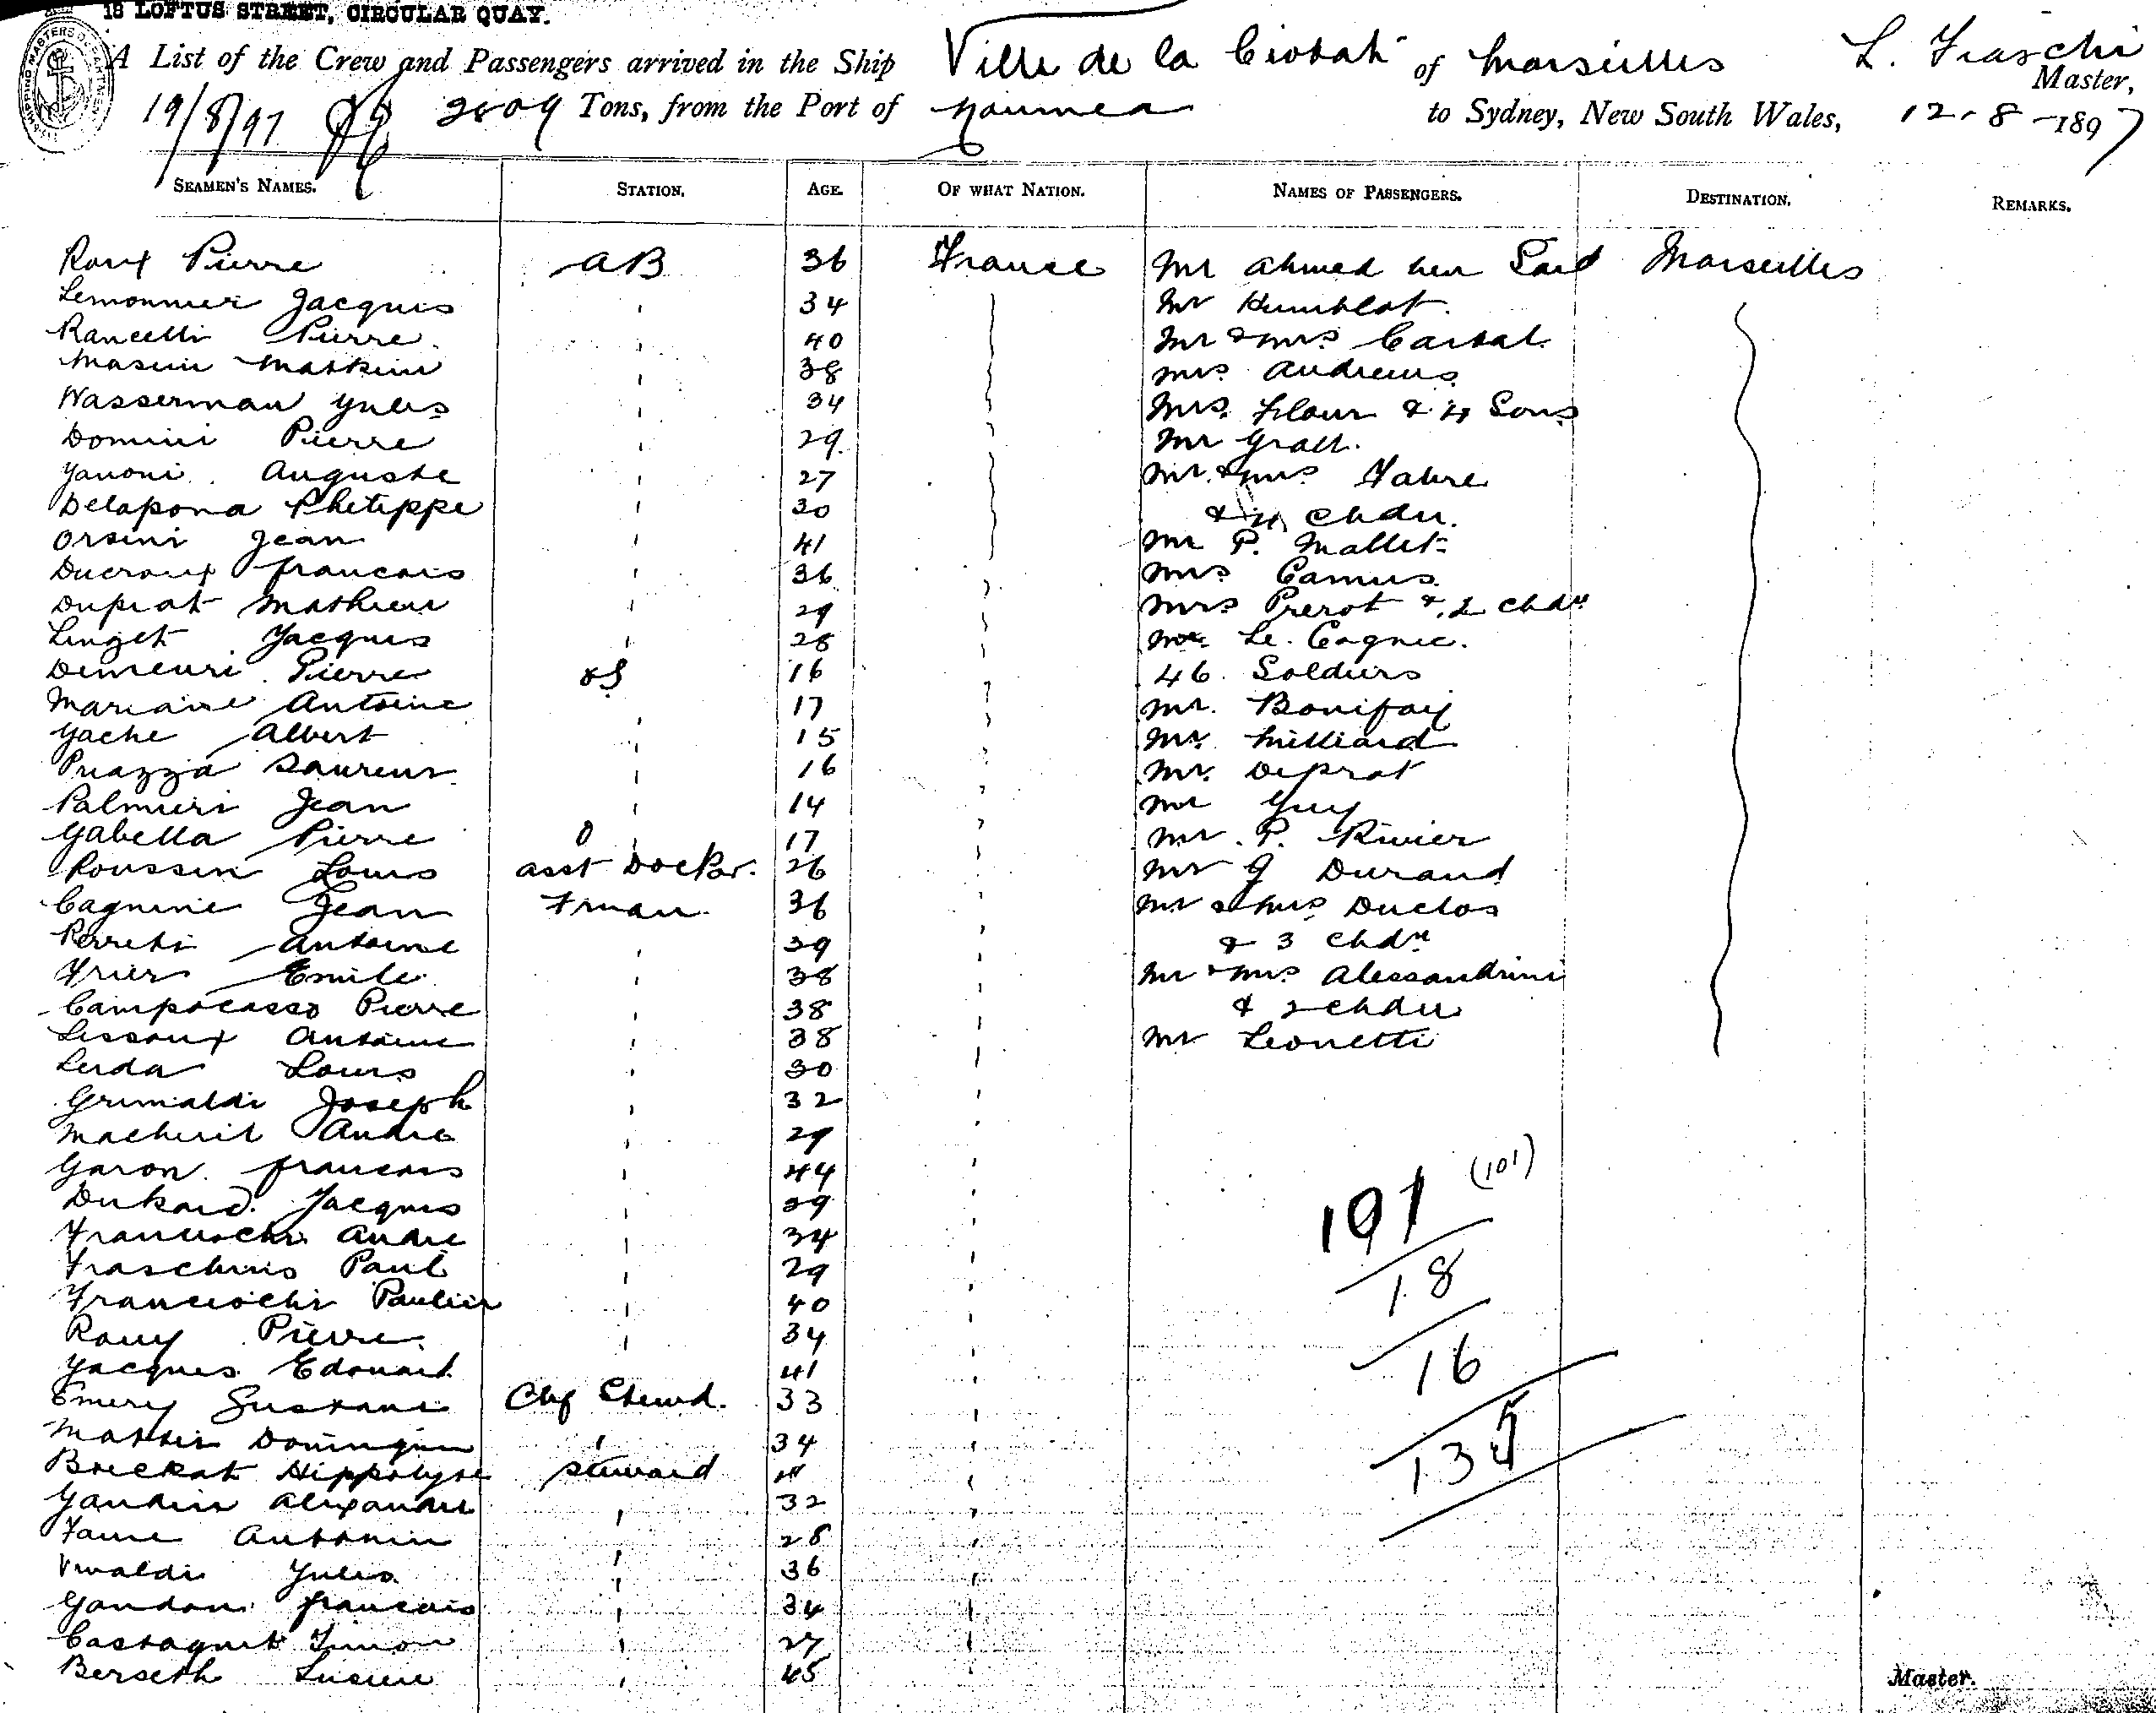 18 LOFTUS STREET, CIRCULAR QUAY.
A List of the Crew and Passengers arrived in the Ship Ville de la Ciotat of Marseilles L. Fraschi Master,
19/8/97 2809 Tons, from the Port of Noumea to Sydney, New South Wales, 12-8-1897
SEAMEN'S NAMES. STATION. AGE. OF WHAT NATION. NAMES OF PASSENGERS. DESTINATION. REMARKS.
Roux Pierre AB 36 France Mr Ahmed ben Said Marseilles
Lemonnier Jacques " 34 Mr Humblot
Rancelli Pierre " 40 Mr & Mrs
Masini " 38 Mrs Andrews
Wasserman Jules " 34 Mrs Flour & 4 Sons
Domini Pierre " 29 Mr Grall
Janoni Auguste " 27 Mr & Mrs Fabre
Delapona Philippe " 30 & 4 Chdn.
Orsini Jean " 41 Mr P. Mallet
Ducroux francois " 36 Mrs Camus
Duprat Mathieu " 29 Mrs Prerot & 2 Chdn
Linget Jacques " 28 Le Cognec.
Demeuri Pierre OS 16 46 Soldiers
Mariani Antoine " 17 Mr. Bonifay
Gache Albert " 15 Mr. Milliard
Piazza " 16 Mr. Deprat
Palmieri Jean " 14 Mr Guy
Gabella Pierre " 17 Mr. P. Rivier
Roussin Louis Asst Doctor. 26 Mr J Durand
Cagnine Jean Fman 36 Mr & Mrs Duclos
Perreti Antoine " 39 & 3 Chdn
Frier Emile " 38 Mr & Mrs Alessandrini
Campocasso Pierre " 38 & 2 Chdn
Lissoux Antoine " 38 Mr Leonetti
Lerda Louis " 30
Grimaldi Joseph " 32
Andre " 29
Garon francois " 44 191 (101)
Jacques " 39
Franceschi Andre " 34 18
Fraschinis Paul " 29
Franceschi Paulin " 40 16
Rouy Pierre " 34
Jacques Edouard " 41
Emery Gustave Chf Stewd. 33 135
Mattei Dominique " 34
Hippolyte Steward
Gaudin Alexandre " 32
Faure Antonin " 28
Vivaldi Jules " 36
Gaudon francois " 34
Castagnet Simon " 27
Berseth Lucien " 45 Master.